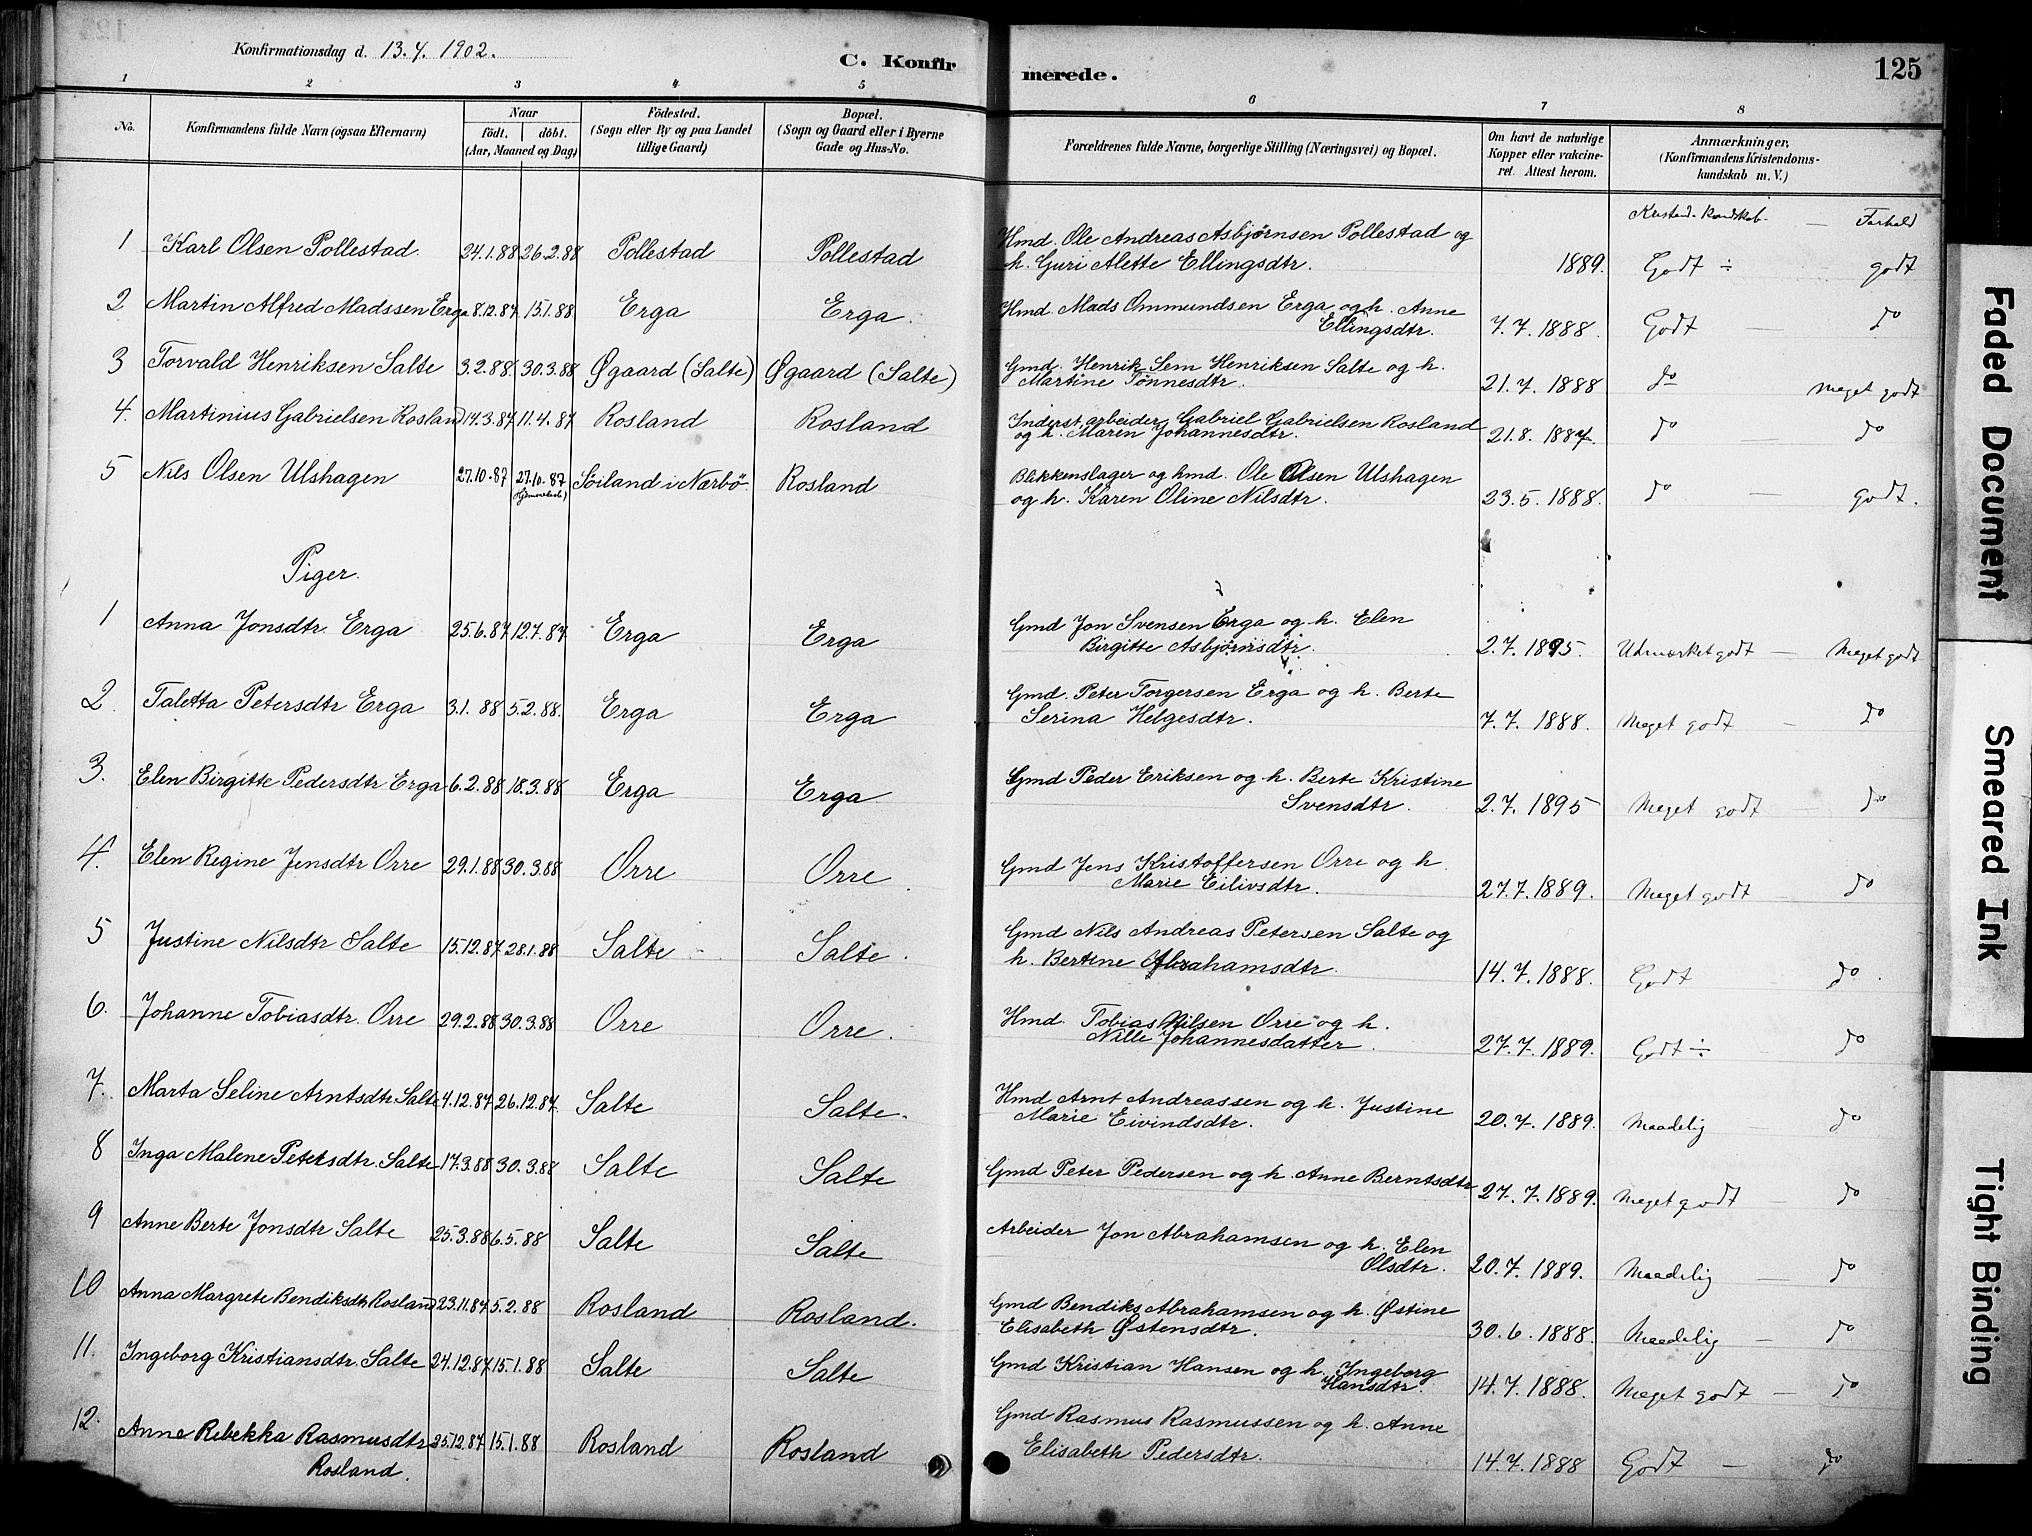 Konfirmationsdag d. 13.4.1902.
C. Konfir
merede.
125
1 2 3 4 5 6 7 8
No.
Konfirmandens fulde Navn (ogsaa Efternavn)
Naar
födt. döbt.
(Aar, Maaned og Dag)
Födested.
(Sogn eller By og paa Landet
tillige Gaard)
Bopæl.
(Sogn og Gaard eller i Byerne
Gade og Hus-No.
Forældrenes fulde Navne, borgerlige Stilling (Næringsvei) og Bopæl.
Om havt de naturlige
Kopper eller vakcine-
ret. Attest herom.
Anmærkninger,
(Konfirmandens Kristendoms-
kundskab m. V.)
Kristend. kundskab. — Forhold
1 Karl Olsen Pollestad. 24.1.88 26.2.88 Pollestad Pollestad Hmd. Ole Andreas Asbjørnsen Pollestad og
h. Guri Alette Ellingsdtr. 1889. Godt ÷ godt
2 Martin Alfred Madssen Erga 8.12.87 15.1.88 Erga Erga. Hmd. Mads Ommundsen Erga og h. Anne
Ellingsdtr. 7.7.1888. Godt — do
3 Torvald Henriksen Salte 3.2.88 30.3.88 Øgaard (Salte) Øgaard (Salte) Gmd. Henrik Sem Henriksen Salte og h.
Martine Tønnesdtr. 21.7.1888 do meget godt
4. Martinius Gabrielsen Rosland 14.3.87 11.4.87 Rosland Rosland Inderst arbeider Gabriel Gabrielsen Rosland
og h. Maren Johannesdtr. 21.8.1887. do — do
5 Nils Olsen Ulshagen 27.10.87 27.10.87 Söiland i Nærbö. Rosland Blikkenslager og hmd. Ole Olsen Ulshagen
(hjemmedøbt)
og h. Karen Oline Nilsdtr. 23.5.1888. do — Godt.
Piger.
1 Anna Jonsdtr. Erga 25.6.87 12.7.87 Erga Erga Gmd Jon Svensen Erga og h. Elen
Birgitte Asbjørnsdtr. 2.7.1895. Udmærket godt — Meget godt
2. Taletta Petersdtr Erga 3.1.88 5.2.88. Erga Erga Gmd. Peter Torgersen Erga og h. Berte
Serina Helgesdtr. 7.7.1888. Meget godt — do
3. Elen Birgitte Pedersdtr Erga 6.2.88 18.3.88 Erga Erga Gmd Peder Eriksen og h. Berte Kristine
Svensdtr. 2.7.1895 Meget godt do
4. Elen Regine Jensdtr Orre 29.1.88 30.3.88 Orre Orre. Gmd Jens Kristoffersen Orre og h
Marie Eilivsdtr. 27.7.1889. Meget godt — do
5 Justine Nilsdtr Salte 15.12.87 28.1.88 Salte Salte. Gmd Nils Andreas Petersen Salte og
h. Bertine Abrahamsdtr. 14.7.1888. Godt do.
6. Johanne Tobiasdtr. Orre 29.2.88 30.3.88 Orre Orre. Hmd. Tobias Nilsen Orre og h.
Nille Johannesdatter. 27.7.1889. Godt ÷ do
7. Marta Seline Arntsdtr. Salte 4.12.87 26.12.87. Salte Salte. Hmd Arnt Andreassen og h. Justine
Marie Eivindsdtr. 20.7.1889. Maadelig — do
8 Inga Malene Petersdtr. Salte 17.3.88 30.3.88 Salte Salte Gmd Peter Pedersen og h. Anne Berntsdtr
27.7.1889. Meget godt — do
9 Anne Berte Jonsdtr Salte 25.3.88 6.5.88 Salte Salte Arbeider Jon Abrahamsen og h. Elen
Olsdtr. 20.7.1889. Maadelig — do
10 Anna Margrete Bendiksdtr Rosland 23.11.87 5.2.88 Rosland Rosland. Gmd Bendiks Abrahamsen og h. Østine
Elisabeth Østensdtr. 30.6.1888. Maadelig — do
11. Ingeborg Kristiansdtr. Salte 24.12.87 15.1.88 Salte Salte Gmd Kristian Hansen og h. Ingeborg
Hansdtr. 14.7.1888. Meget godt — do
12. Anne Rebekka Rasmusdtr 25.12.87 15.1.88 Rosland Rosland Gmd Rasmus Rasmussen og h. Anne
Rosland. Elisabeth Pedersdtr. 14.7.1888 Godt — do
Faded Document
Smeared Ink
Tight Binding